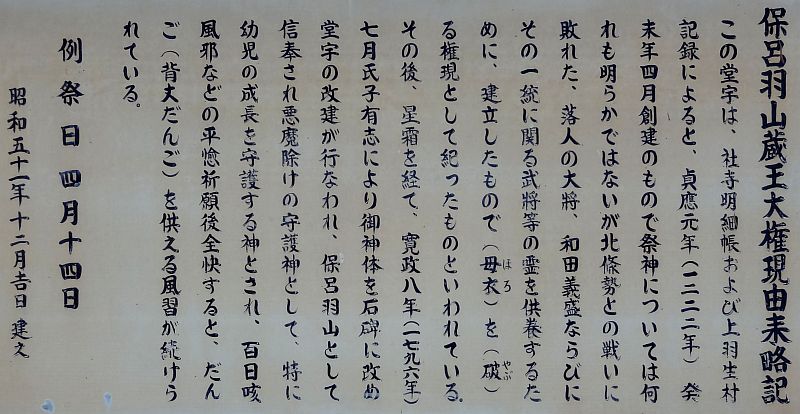 保呂羽山蔵王大権現由来略記
この堂宇は、社寺明細帳および上羽生村
記録によると、貞應元年(一二二二年)癸
未年四月創建のもので祭神については何
れも明らかではないが北條勢との戦いに
敗れた、落人の大将、和田義盛ならびに
その一統に関る武将等の霊を供養するた
めに、建立したもので(母衣)を(破)
ほろ
やぶ
る権現として紀ったものといわれている。
その後、星霜を経て、寛政八年(一七九六年)
七月氏子有志により御神体を石碑に改め
堂宇の改建が行なわれ、保呂羽山として
信奉され悪魔除けの守護神として、特に
幼児の成長を守護する神とされ、百日咳
風邪などの平愈祈願後全快すると、だん
ご(背丈だんご)を供える風習が続けら
れている。
例祭日 四月十四日
昭和五十一年十二月吉日 建之